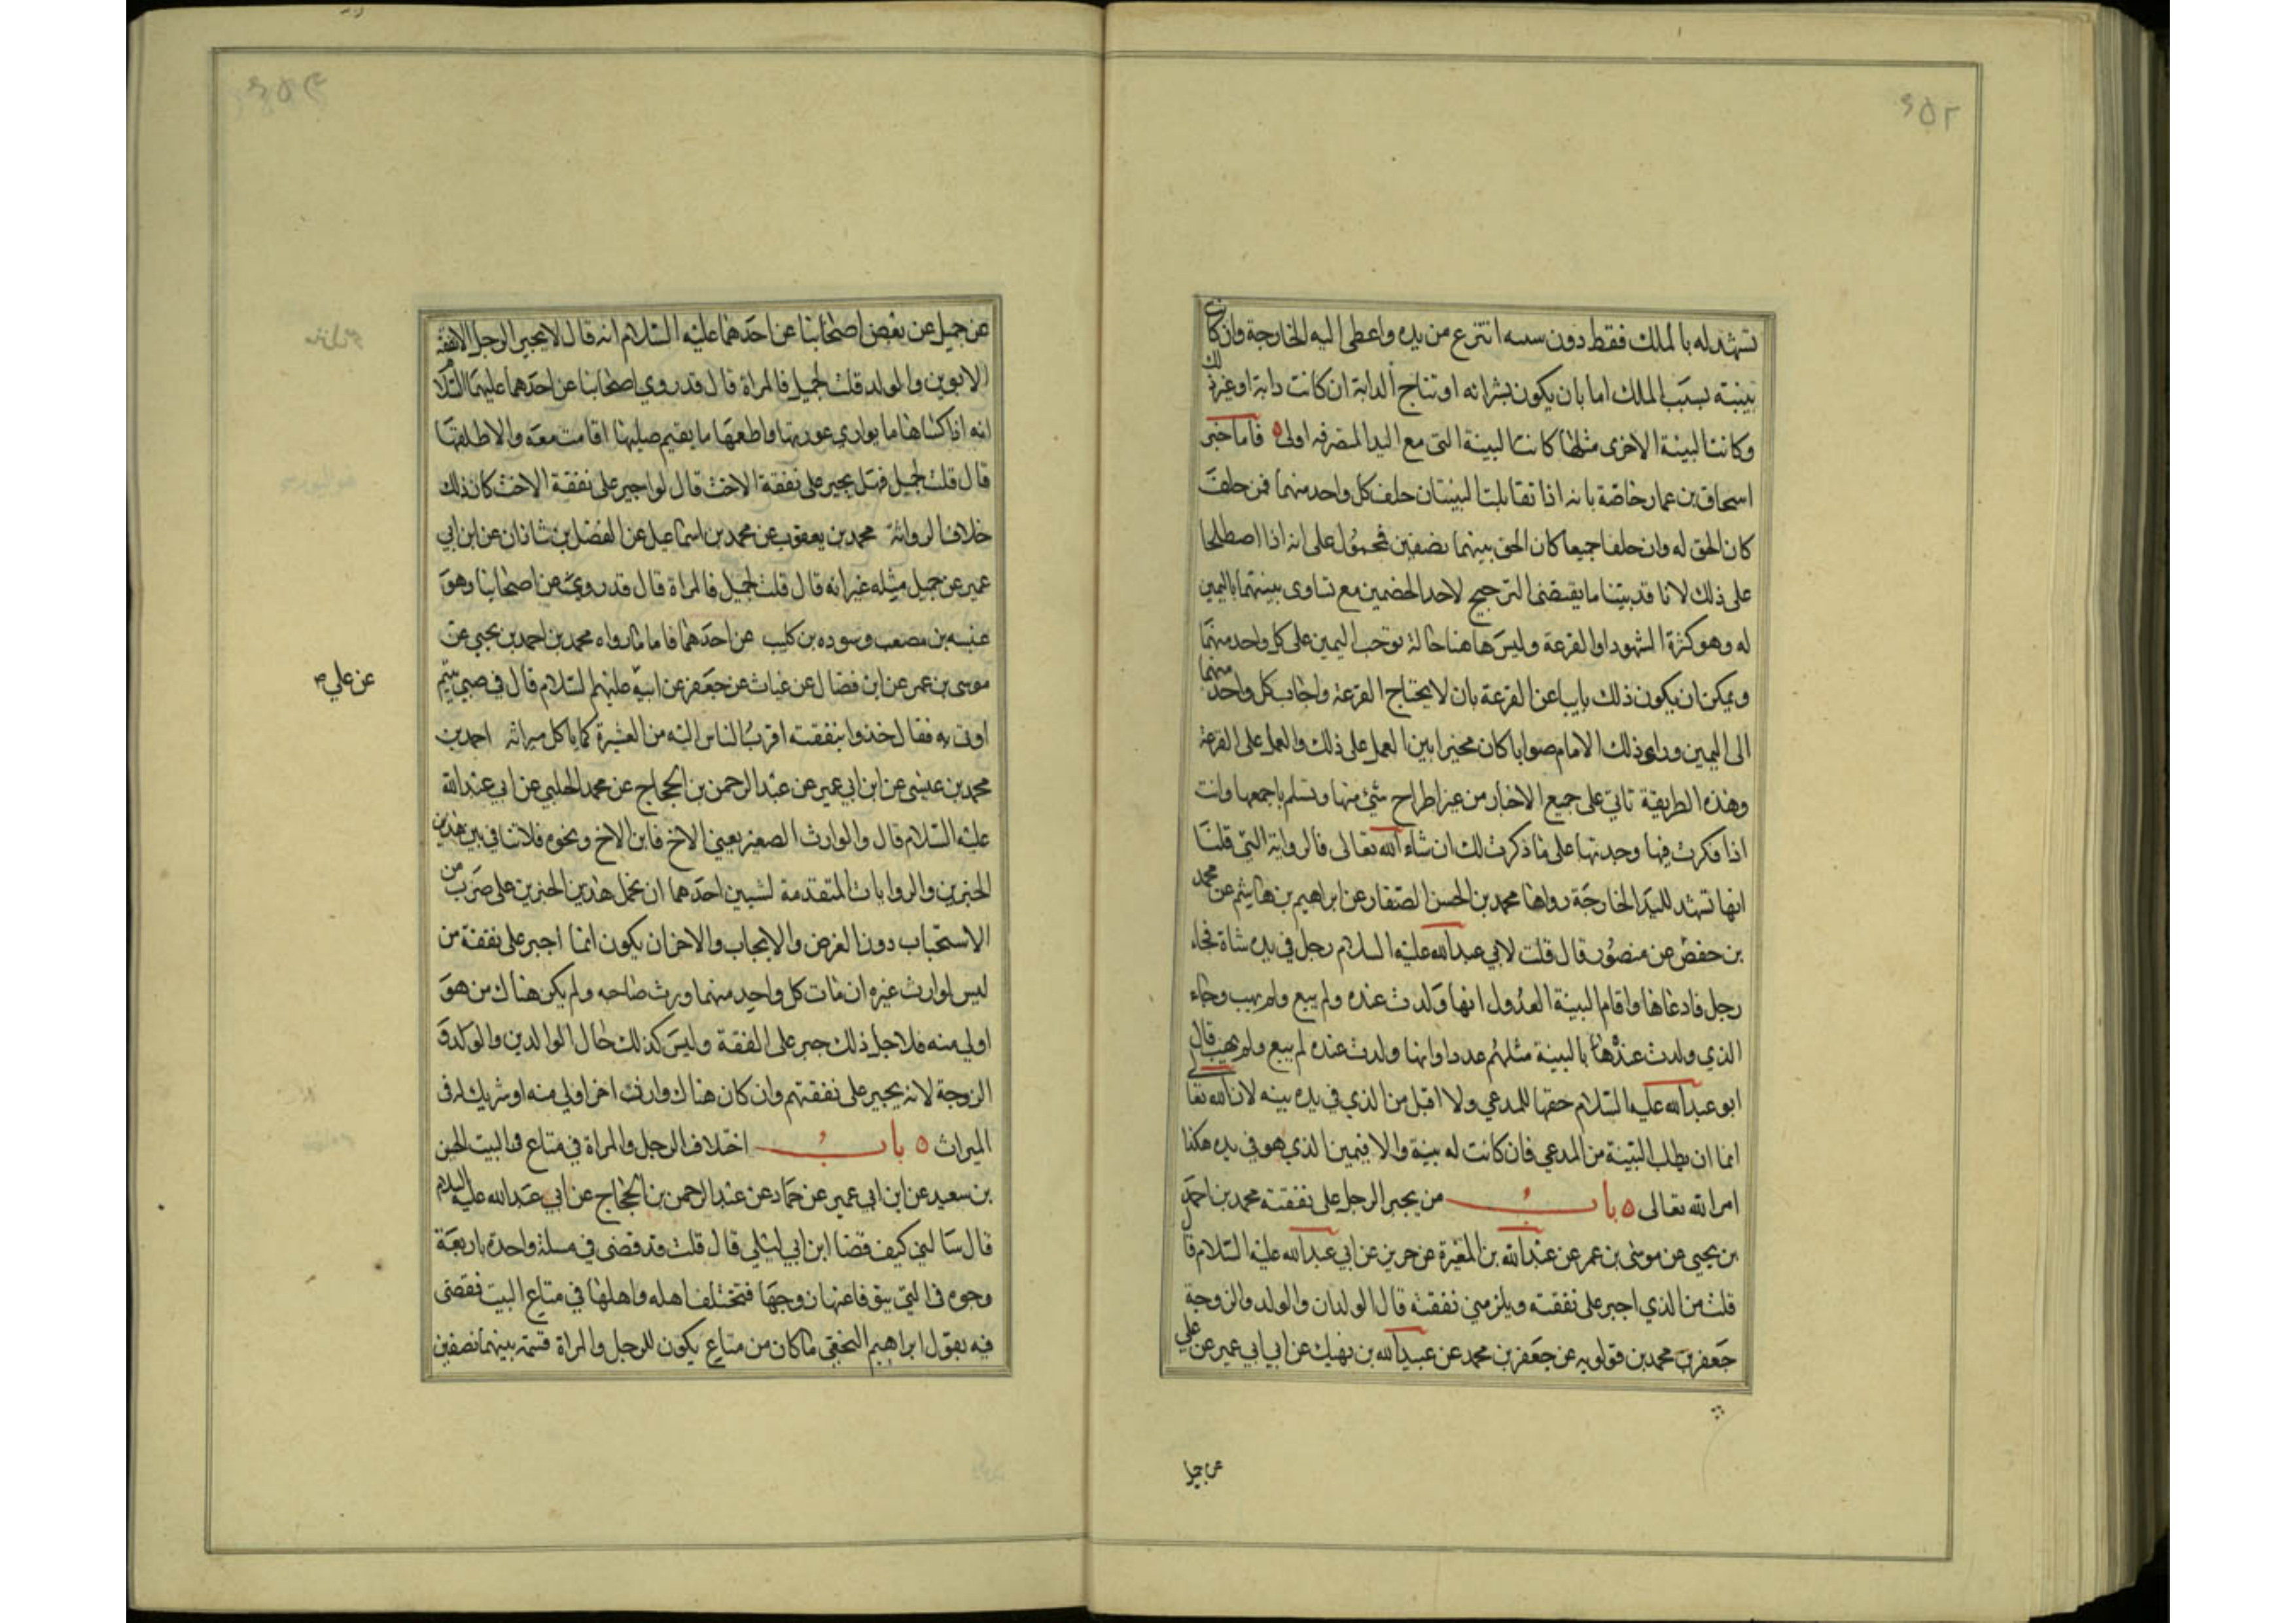 ٢٥٢
تشهد له بالملك فقط دون سببه انتزع من يده واعطى اليه الخارجة وان كانت
بينته بسبب الملك اما بان يكون بشرائه او نتاج الدابة ان كانت دابة او غير ذلك
وكانت البينة الاخرى مثلها كانت البينة التي مع اليد المتصرفه اولى ٥ فاما خبر
اسحاق بن عمار خاصة بانه اذا تقابلت البينتان حلف كل واحد منهما فمن حلف
كان الحق له وان حلفا جميعا كان الحق بينهما نصفين فمحمول على انه اذا اصطلحا
على ذلك لانا قد بيّنا ما يقتضى الترجيح لاحد الخصمين مع تساوى بينتهما باليمين
له وهو كثرة الشهود او القرعة وليس هاهنا حالة توجب اليمين على كل واحد منهما
ويمكن ان يكون ذلك نايبا عن القرعة بان لا يحتاج القرعة واجاب كل واحد منهما
الى اليمين وراى ذلك الامام صوابا كان مخيرا بين العمل على ذلك والعمل على القرعة
وهذه الطريقة تاتي على جميع الاخبار من غير اطراح شئ منها وتسلم باجمعها وانت
اذا فكرت فيها وجدتها على ما ذكرت لك ان شاء الله تعالى فالرواية التي قلنا
انها تشهد لليد الخارجة رواها محمد بن الحسن الصفار عن ابراهيم بن هاشم عن محمد
بن حفص عن منصور قال قلت لابي عبد الله عليه السلام رجل في يده شاة فجاء
رجل فادعاها واقام البينة العدول انها ولدت عنده ولم يبع ولم يهب وجاء
الذي ولدت عنده ها بالبينة مثلهم عددا وانها ولدت عنده لم يبع ولم يهب قال
ابو عبد الله عليه السلام حقها للمدعي ولا اقبل من الذي في يده بينه لان الله تعا
انما ان يطلب البينة من المدعي فان كانت له بينة والا فيمين الذي هو في يده هكذا
امر الله تعالى ٥ باب من يجبر الرجل على نفقته محمد بن احمد
بن يحيى عن موسى بن عمر عن عبد الله بن المغيرة عن حريز عن ابي عبد الله عليه السلام قال
قلت من الذي اجبر على نفقته ويلزمني نفقته قال الولدان والولد والزوجة
جعفر بن محمد بن قولويه عن جعفر بن محمد عن عبيد الله بن نهيك عن ابي ابي عمير عن علي
عن جميل
عن جميل عن بعض اصحابنا عن احدهما عليه السلام انه قال لا يجبر الرجل الا نفقة
الابوين والولد قلت لجميل فالمراة قال قد روي اصحابنا عن احدهما عليهما السلام
انه اذا كساها ما يواري عورتها واطعمها ما يقيم صلبها اقامت معه والا طلقها
قال قلت لجميل فهل يجبر على نفقة الاخت قال لو اجبر على نفقة الاخت كان ذلك
خلاف الرواية محمد بن يعقوب عن محمد بن اسماعيل عن الفضل بن شاذان عن ابن ابي
عمير عن جميل مثله غير انه قال قلت لجميل فالمراة قال قد روي عن اصحابنا وهو
عنبسه بن مصعب وسوره بن كليب عن احدهما فاما ما رواه محمد بن احمد بن يحيى عن
موسى بن عمر عن ابن فضال عن غياث عن جعفر عن ابيه عليهم السلام قال في صبي يتيم
عن علي ص
اوتي به فقال خذوا بنفقته اقرب الناس اليه من العشيرة كما ياكل ميراثه احمد بن
محمد بن عيسى عن ابن ابي عمير عن عبد الرحمن بن الحجاج عن محمد الحلبي عن ابي عبد الله
عليه السلام قال والوارث الصغير يعني الاخ فابن الاخ ونحوه فلا تنافي بين هذين
الخبرين والروايات المتقدمة لشيين احدهما ان نحمل هذين الخبرين على ضرب من
الاستحباب دون الفرض والايجاب والاخر ان يكون انما اجبر على نفقة من
ليس لوارث غيره ان مات كل واحد منهما ورث صاحبه ولم يكن هناك من هو
اولي منه فلاجل ذلك جبر على النفقة وليس كذلك حال الوالدين والولد و
الزوجة لانه يجبر على نفقتهم وان كان هناك وارث اخر اولي منه او شريك له في
الميراث ٥ باب اختلاف الرجل والمراة في متاع البيت الحسين
بن سعيد عن ابن ابي عمير عن حماد عن عبد الرحمن بن الحجاج عن ابي عبد الله عليه السلام
قال سالني كيف قضا ابن ابي ليلى قال قلت قد قضى في مسلة واحدة باربعة
وجوه في التي يتوفا عنها زوجها فتختلف اهله واهلها في متاع البيت فقضى
فيه بقول ابراهيم النخعي ما كان من متاع يكون للرجل والمراة قسمه بينهما نصفين